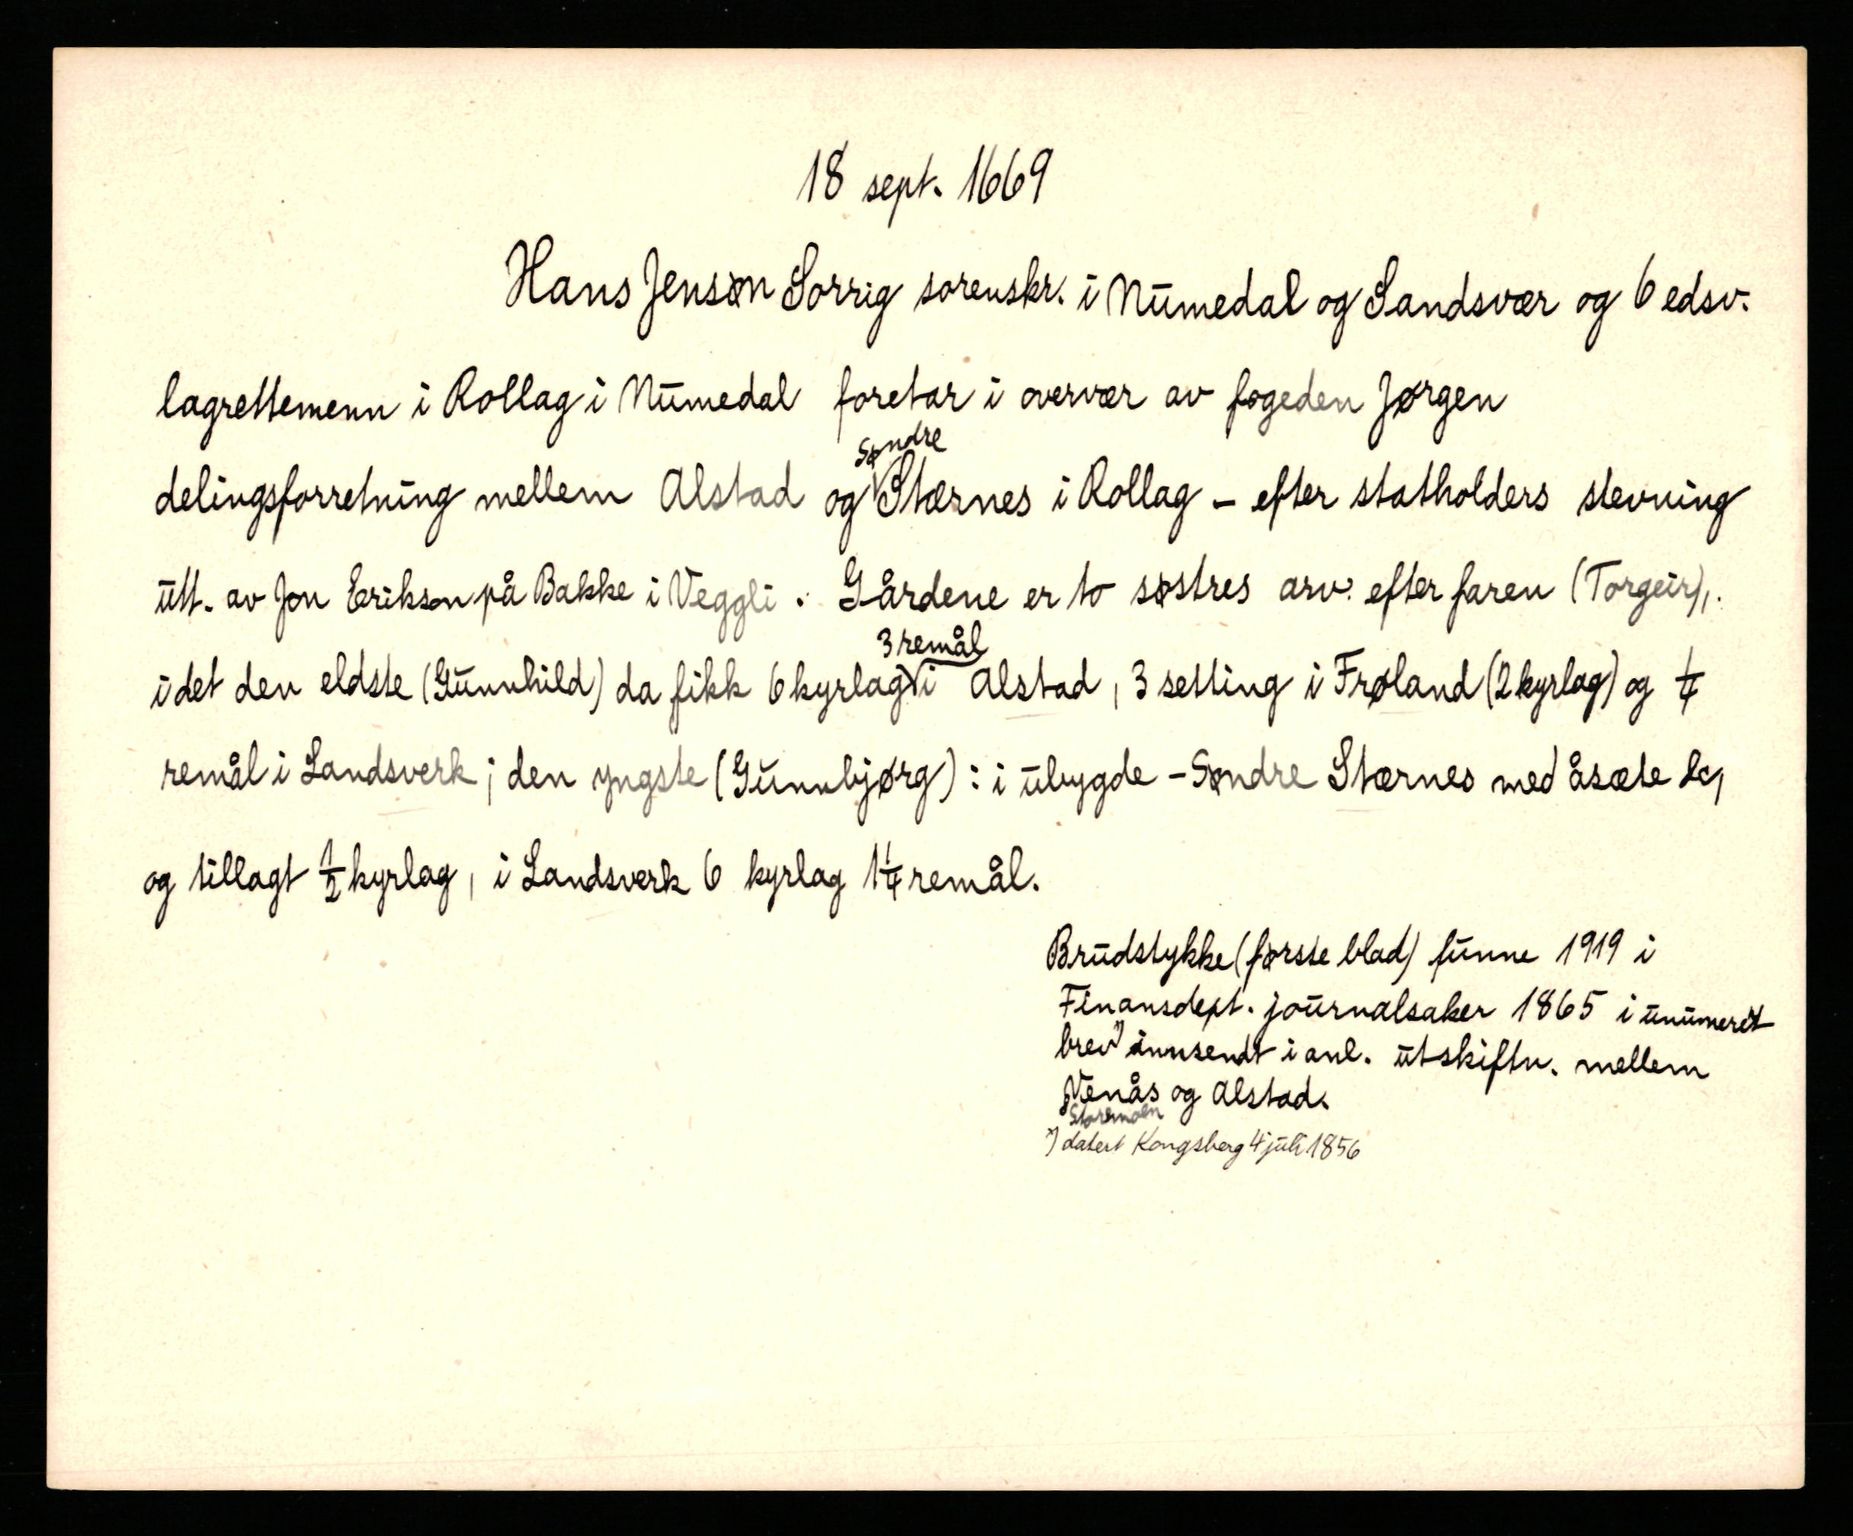 18 sept. 1669
Hans Jensøn Sorrig sorenskr. i Numedal og Sandsvær og 6 edsv.
lagrettemenn i Rollag i Numedal foretar i overvær av fogeden Jørgen
Søndre
delingsforretning mellem Alstad og Stærnes i Rollag – efter statholders stevning
utt. av Jon Erikson på Bakke i Veggli. Gårdene er to søstres arv efter faren (Torgeir),
3 remål
idet den eldste (Gunnhild) da fikk 6 kyrlag i Alstad, 3 setting i Frøland (2 kyrlag) og 1/4
remål i Landsverk; den yngste (Gunnbjørg): i ubygde – Søndre Stærnes med åsæte &c,
og tillagt 1/2 kyrlag, i Landsverk 6 kyrlag 1 1/4 remål.
Brudstykke (første blad) funne 1919 i
Finansdept. journalsaker 1865 i unumeret
brev*) innsendt i anl. utskiftn. mellem
Venås og Alstad.
Staremoen
*) datert Kongsberg 4 juli 1856